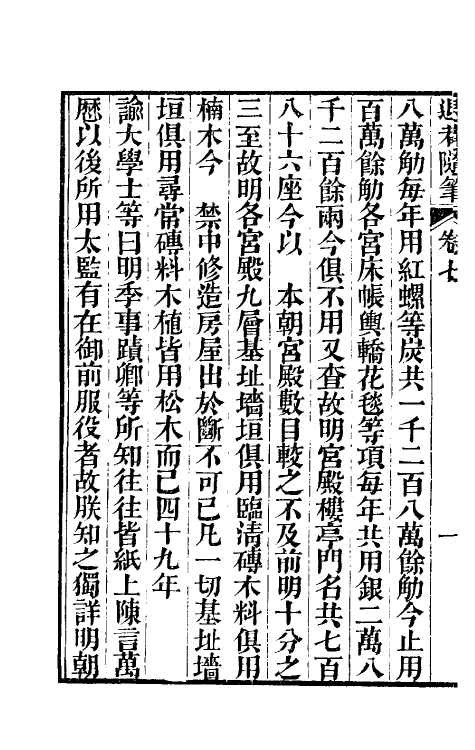 退菴隨筆 卷七 一
八萬觔每年用紅螺等炭共一千二百八萬餘觔今止用
百萬餘觔各宮床帳輿轎花毯等項每年共用銀二萬八
千二百餘兩今俱不用又查故明宮殿樓亭門名共七百
八十六座今以 本朝宮殿數目較之不及前明十分之
三至故明各宮殿九層基址墻垣俱用臨清磚木料俱用
楠木今 禁中修造房屋出於斷不可已凡一切基址墻
垣俱用尋常磚料木植皆用松木而已四十九年
諭大學士等曰明季事蹟卿等所知往往皆紙上陳言萬
歷以後所用太監有在御前服役者故朕知之獨詳明朝